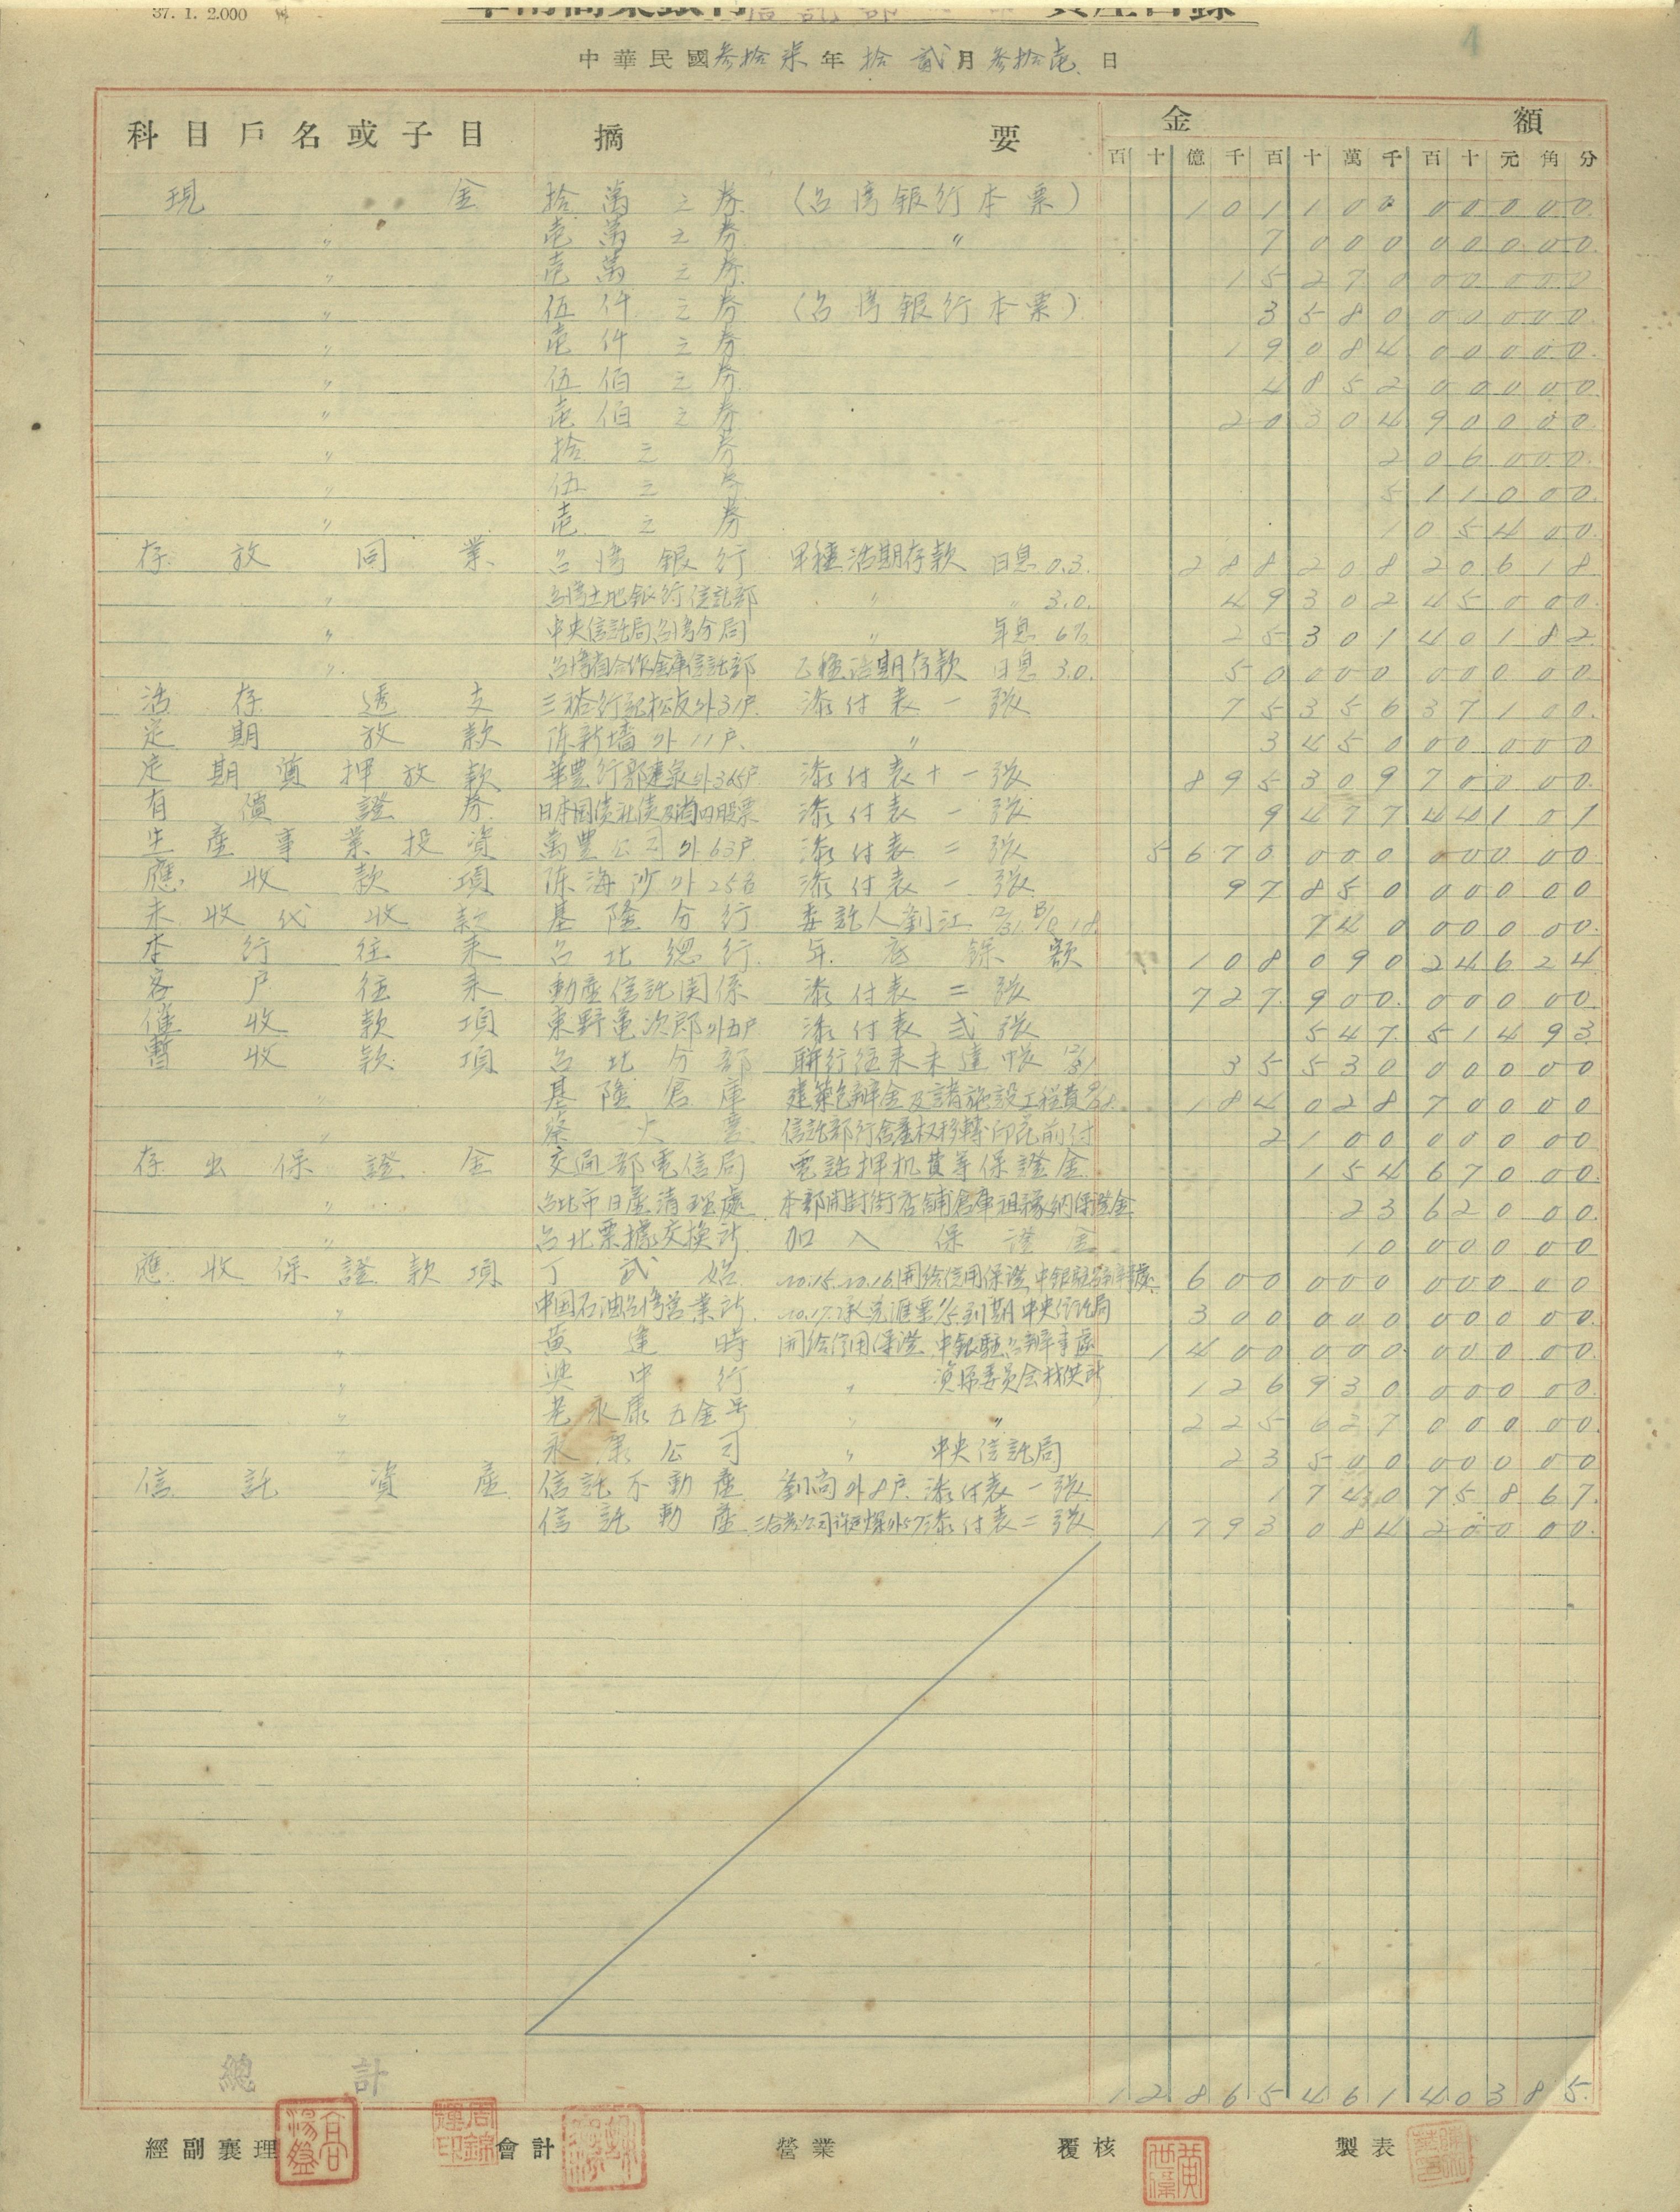 37. 1. 2.000
華南商業銀行信託部 資產目錄
中華民國叁拾柒年拾貳月叁拾壱日
科目戶名或子目 摘要 金額
百 十 億 千 百 十 萬 千 百 十 元 角 分
現金 拾萬之券 (台湾銀行本票) 101100000000
〃 壱萬之券 〃 7000000000
〃 壱萬之券 15270000000
〃 伍仟之券 (台湾銀行本票) 3580000000
〃 壱仟之券 19084000000
〃 伍佰之券 4852000000
〃 壱佰之券 20304900000
〃 拾之券 206000
〃 伍之券 511000
〃 壱之券 105400
存放同業 台湾銀行 甲種活期存款 日息0.3. 28820820618
〃 台湾土地銀行信託部 〃 〃 3.0. 4930245000
〃 中央信託局台湾分局 〃 年息 6% 2530140182
〃 台湾省合作金庫信託部 乙種活期存款 日息 3.0. 5000000000
活存透支 外31戶. 添付表一張 7535637100
定期放款 陈新墻外11戶. 〃 345000000
定期質押放款 華豊行郭建泉外365戶 添付表十一張 89530970000
有價證券 日本国債社債及省四股票 添付表一張 947744101
生產事業投資 萬豊公司外63戶 添付表二張 567000000000
應收款項 陈海沙外25名 添付表一張 9785000000
未收代收款 基隆分行 委託人劉江 74000000
本行往來 台北總行 年底餘額 10809024624
客戶往來 動產信託関係 添付表二張 72790000000
催收款項 東野亀次郎外五戶 添付表弍張 54751493
暫收款項 台北分部 聯行往来未達帳 12/31 3553000000
〃 基隆倉庫 建築包辦金及諸施設工程費 18402870000
〃 蔡火慶 信託部行舍產权移轉印花前付 210000000
存出保證金 交通部電信局 電話押机費等保證金 15467000
〃 台北市日產清理處 本部開封街店舖倉庫租賃豫納保證金 2362000
〃 台北票據交換所 加入保證金 1000000
應收保證款項 丁武始 no.15.no.16開給信用保證 中銀駐台辦事處 60000000000
〃 中国石油台湾営業所 no.17.承兌滙票1/5到期中央信託局 30000000000
〃 黃逢時 開給信用保證 中銀駐台辦事處 140000000000
〃 興中行 〃 資源委員会材供所 12693000000
〃 老永康五金号 〃 〃 22562700000
永 公司 〃 中央信託局 2350000000
信託資產 信託不動產 劉高外8戶. 添付表一張 174075867
信託動產 外57 添付表二張 179308420000
總計 1286546140385
經副襄理 會計 營業 覆核 製表